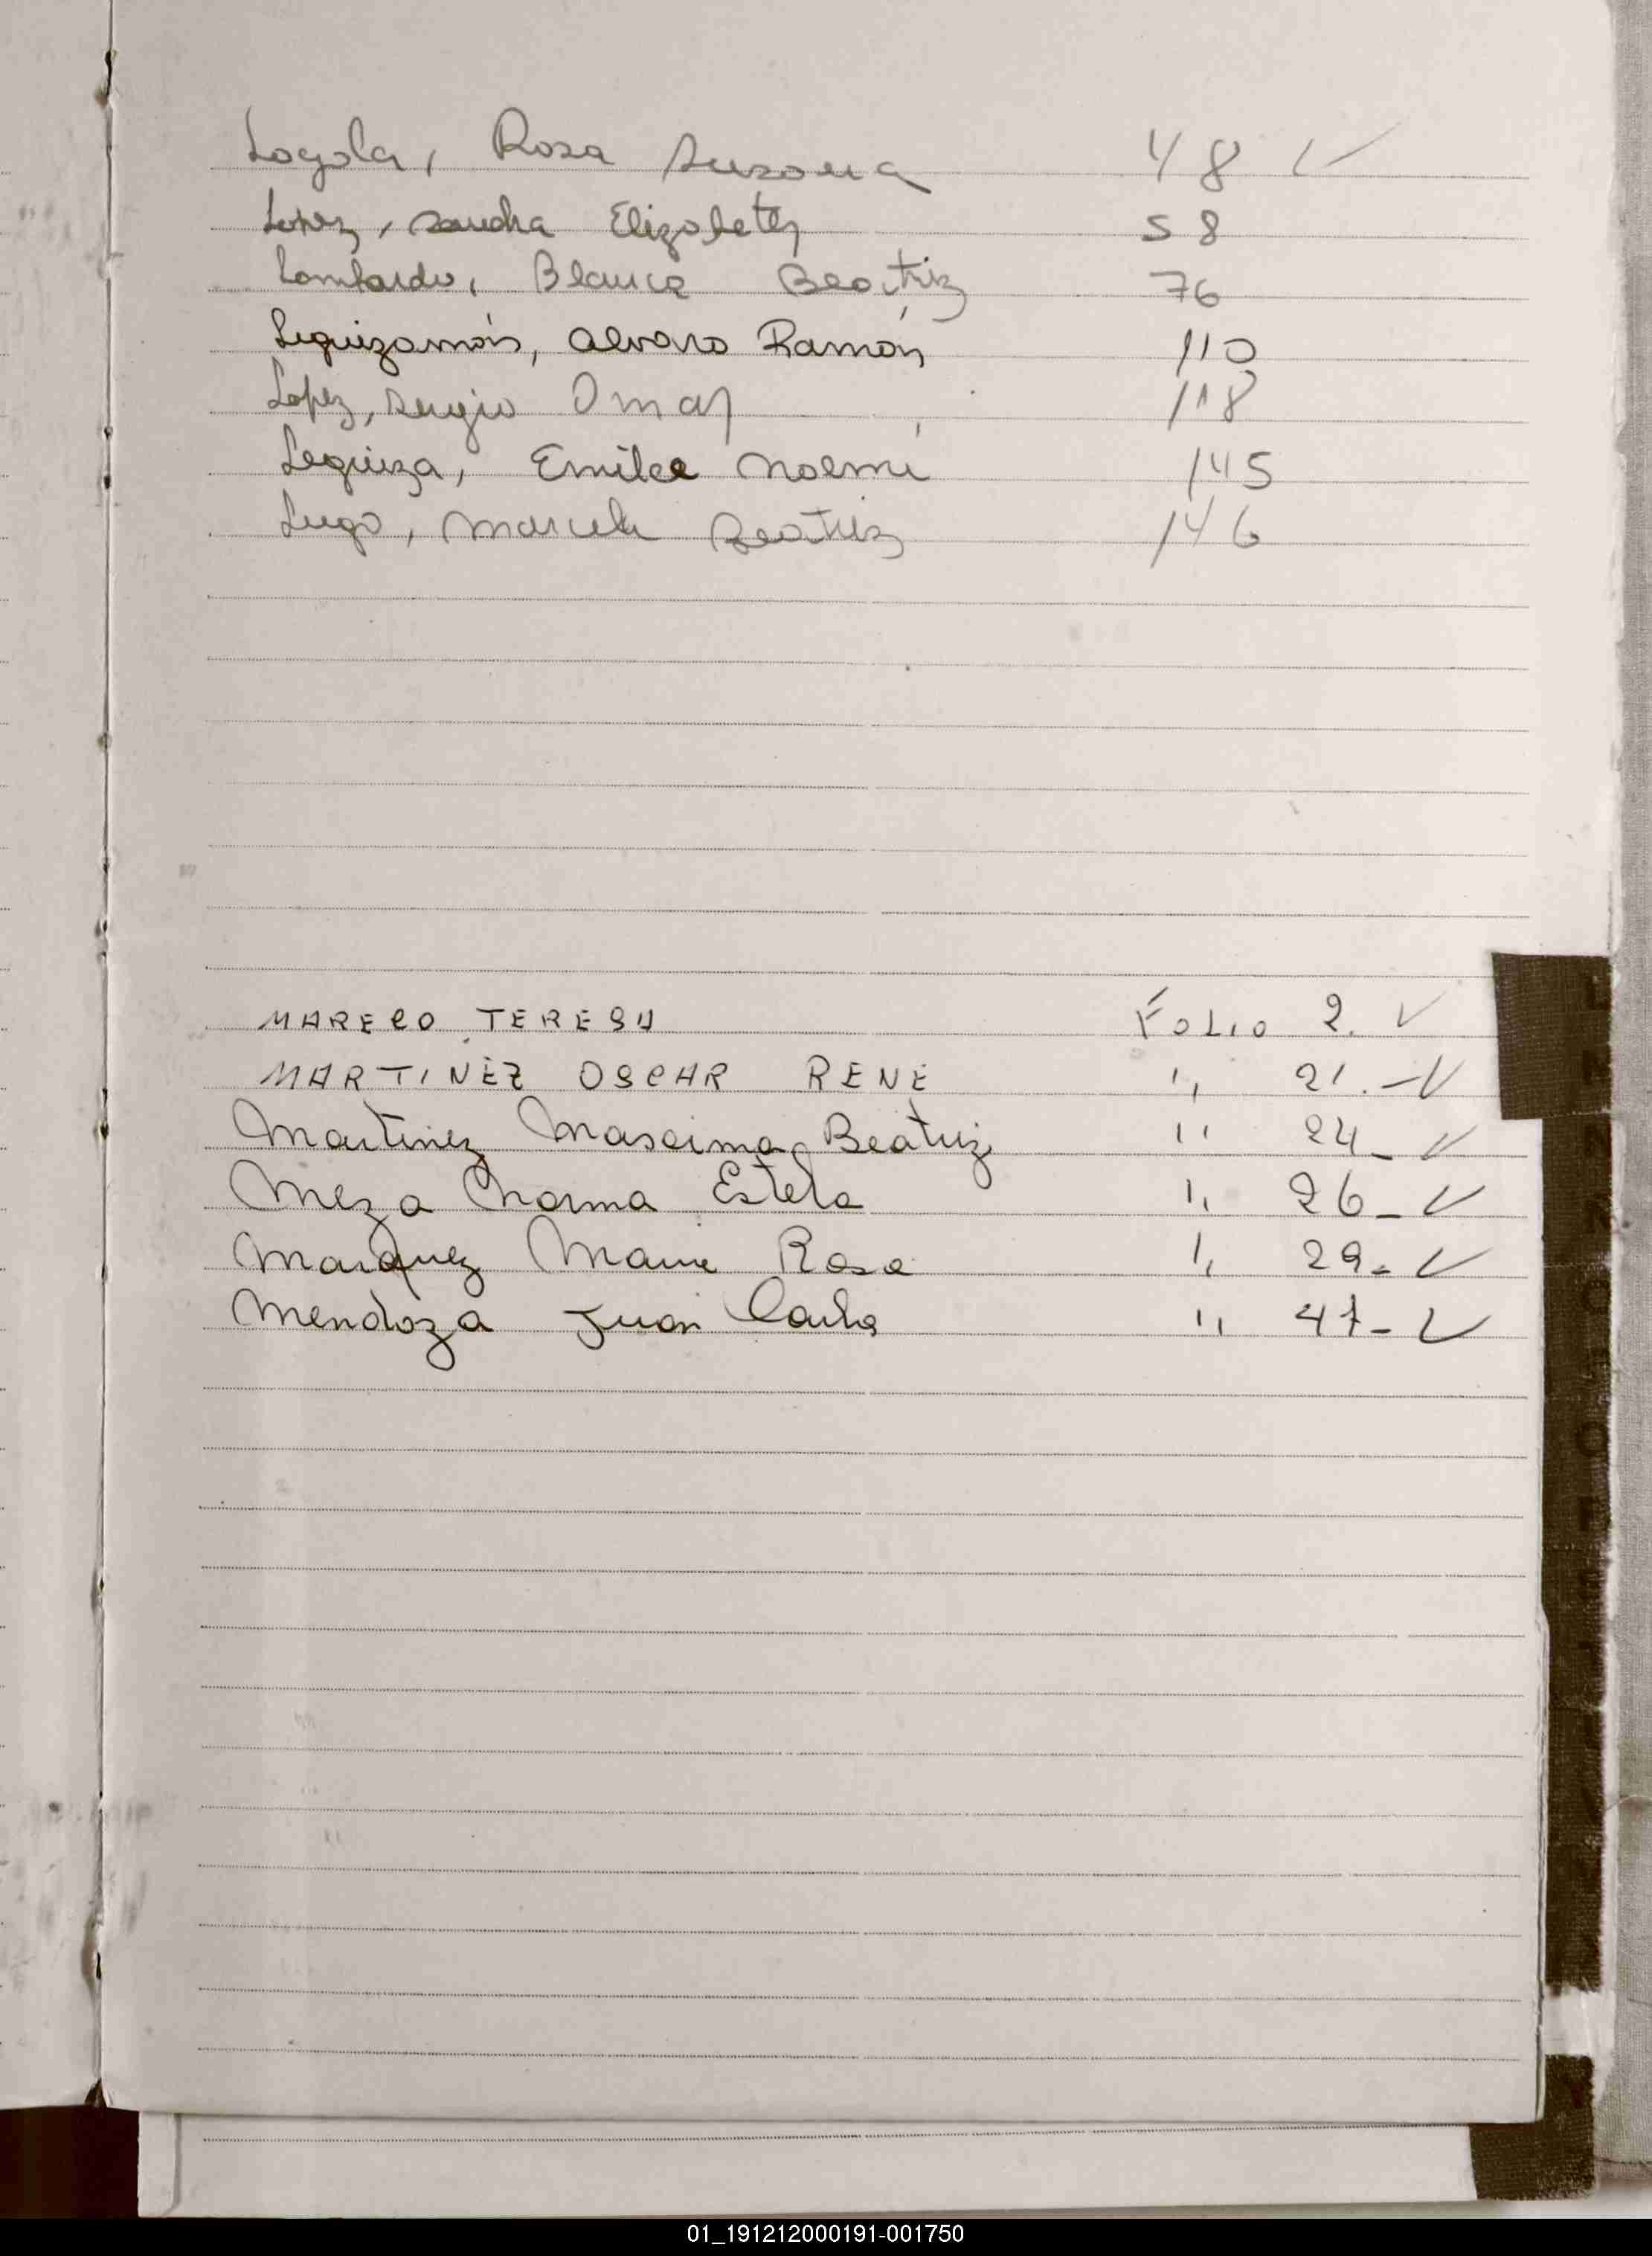 Loyola, Rosa Susana 48 ✓
Lopez, Sandra Elizabeth 58
Lombardo, Blanca Beatriz 76
Leguizamón, Alvaro Ramón 110
Lopez, Sergio Omar 118
Leguiza, Emilce Noemí 145
Lugo, Marcela Beatriz 146
MARECO TERESA FOLIO 2. ✓
MARTINEZ OSCAR RENE " 21.-✓
Martinez Beatriz " 24- ✓
Meza Norma Estela " 26- ✓
Marquez Maria Rosa " 29- ✓
Mendoza Juan Carlos " 47- ✓
01_191212000191-001750